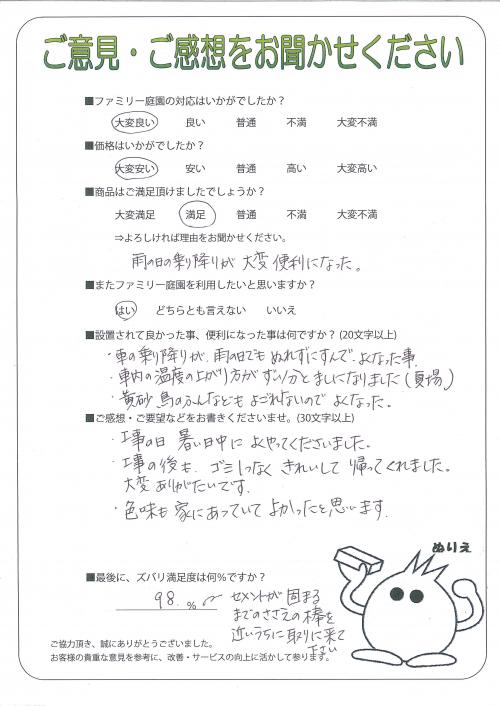 ご意見・ご感想をお聞かせください
■ファミリー庭園の対応はいかがでしたか？
大変良い 良い 普通 不満 大変不満
■価格はいかがでしたか？
大変安い 安い 普通 高い 大変高い
■商品はご満足頂けましたでしょうか？
大変満足 満足 普通 不満 大変不満
⇒よろしければ理由をお聞かせください。
雨の日の乗り降りが 大変 便利になった。
■またファミリー庭園を利用したいと思いますか？
はい どちらとも言えない いいえ
■設置されて良かった事、便利になった事は何ですか？(20文字以上)
・車の乗り降りが、雨の日でも ぬれずにすんで、よくなった事
・車内の温度の上がり方がずい分とましになりました(夏場)
・黄砂 鳥のふんなども よごれないので よくなった。
■ご感想・ご要望などをお書きくださいませ。(30文字以上)
・工事の日 暑い日中に よくやってくださいました。
・工事の後も、ゴミ1つなく きれいにして 帰ってくれました。
大変 ありがたいです。
・色味も 家にあっていて よかったと思います。
ぬりえ
■最後に、ズバリ満足度は何％ですか？
98 %
セメントが 固まる
までのささえの棒を
近いうちに取りに来て
下さい
ご協力頂き、誠にありがとうございました。
お客様の貴重な意見を参考に、改善・サービスの向上に活かして参ります。